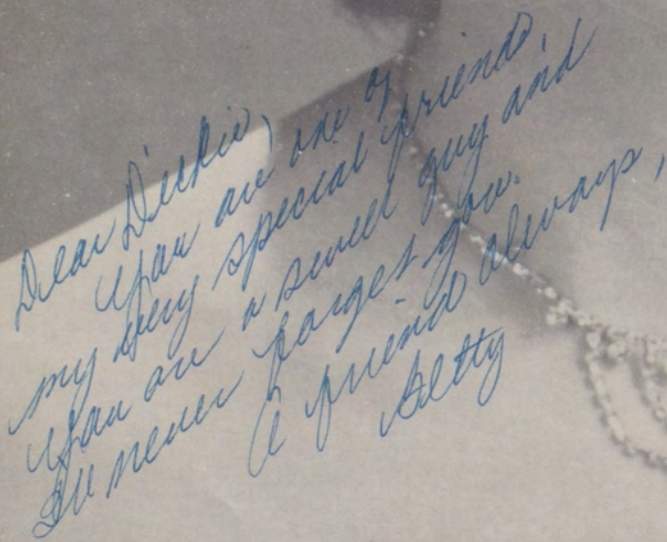 Dear Dickie,
You are one of
my very special friends,
You are a sweet guy and
I'll never forget you.
A friend always,
Betty